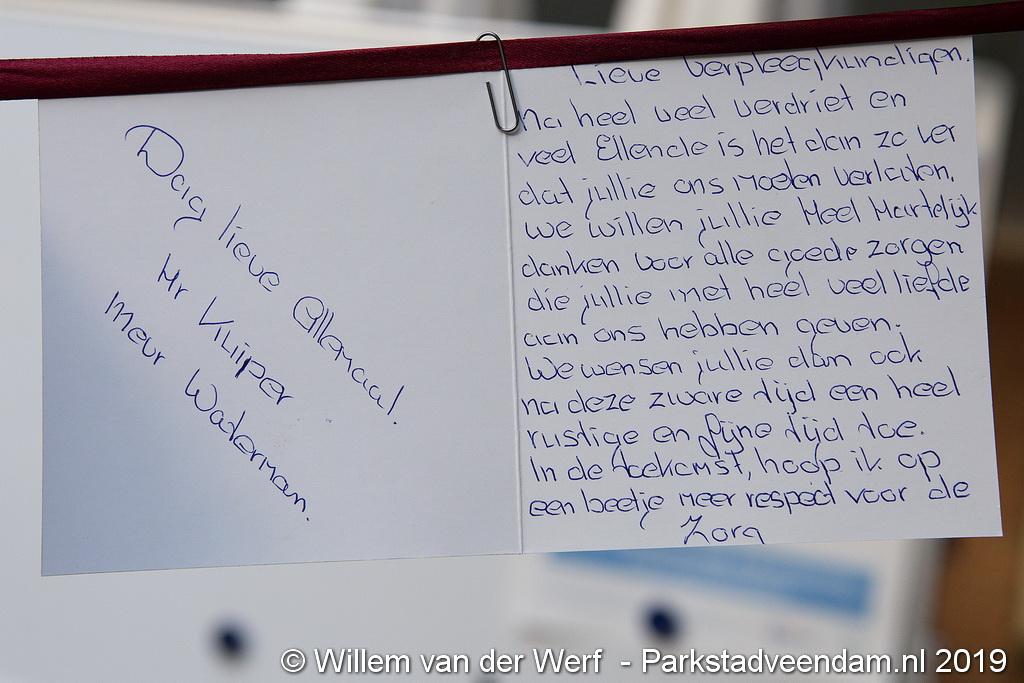 Dag lieve Allemaal!
Hr Kuiper
Mevr Waterman.
Lieve Verpleegkundigen.
Na heel veel verdriet en
veel Ellende is het dan zo ver
dat jullie ons moeten verlaten.
We willen jullie Heel Hartelijk
danken voor alle goede zorgen
die jullie met heel veel liefde
aan ons hebben geven.
We wensen jullie dan ook
na deze zware tijd een heel
rustige en fijne tijd toe.
In de toekomst, hoop ik op
een beetje meer respect voor de
Zorg
© Willem van der Werf - Parkstadveendam.nl 2019